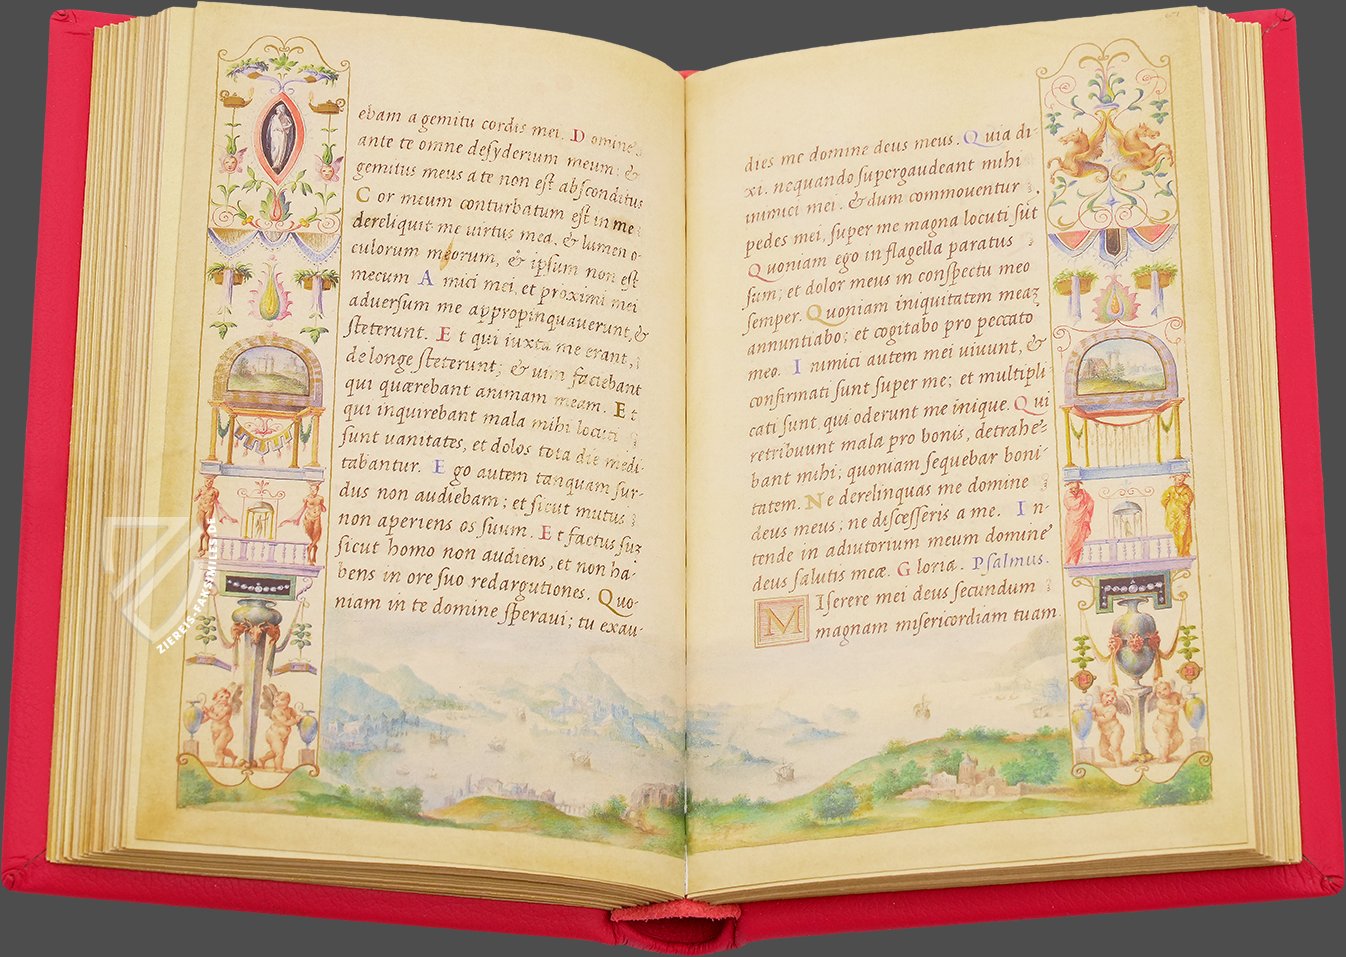 ebam a gemitu cordis mei. Domine
ante te omne desyderium meum; &
gemitus meus a te non est absconditus
Cor meum conturbatum est in me
dereliquit me uirtus mea, & lumen o-
culorum meorum, & ipsum non est
mecum Amici mei, et proximi mei
aduersum me appropinquauerunt, &
steterunt. Et qui iuxta me erant,
de longe steterunt; & uim faciebant
qui quærebant animam meam. Et
qui inquirebant mala mihi locuti
sunt uanitates, et dolos tota die medi-
tabantur. Ego autem tanquam sur-
dus non audiebam; et sicut mutus
non aperiens os suum. Et factus suz
sicut homo non audiens, et non ha-
bens in ore suo redargutiones. Quo-
niam in te domine speraui; tu exau-
dies me domine deus meus. Quia di-
xi. nequando supergaudeant mihi
inimici mei. & dum commouentur
pedes mei, super me magna locuti sūt
Quoniam ego in flagella paratus
sum; et dolor meus in conspectu meo
semper. Quoniam iniquitatem meaz
annuntiabo; et cogitabo pro peccato
meo. Inimici autem mei uiuunt, &
confirmati sunt super me; et multipli-
cati sunt, qui oderunt me inique. Qui
retribuunt mala pro bonis, detrahe-
bant mihi; quoniam sequebar boni-
tatem. Ne derelinquas me domine
deus meus; ne discesseris a me. In-
tende in adiutorium meum domine
deus salutis meæ. Gloria. Psalmus.
Miserere mei deus secundum
magnam misericordiam tuam
ZIEREIS-FAKSIMILES.DE